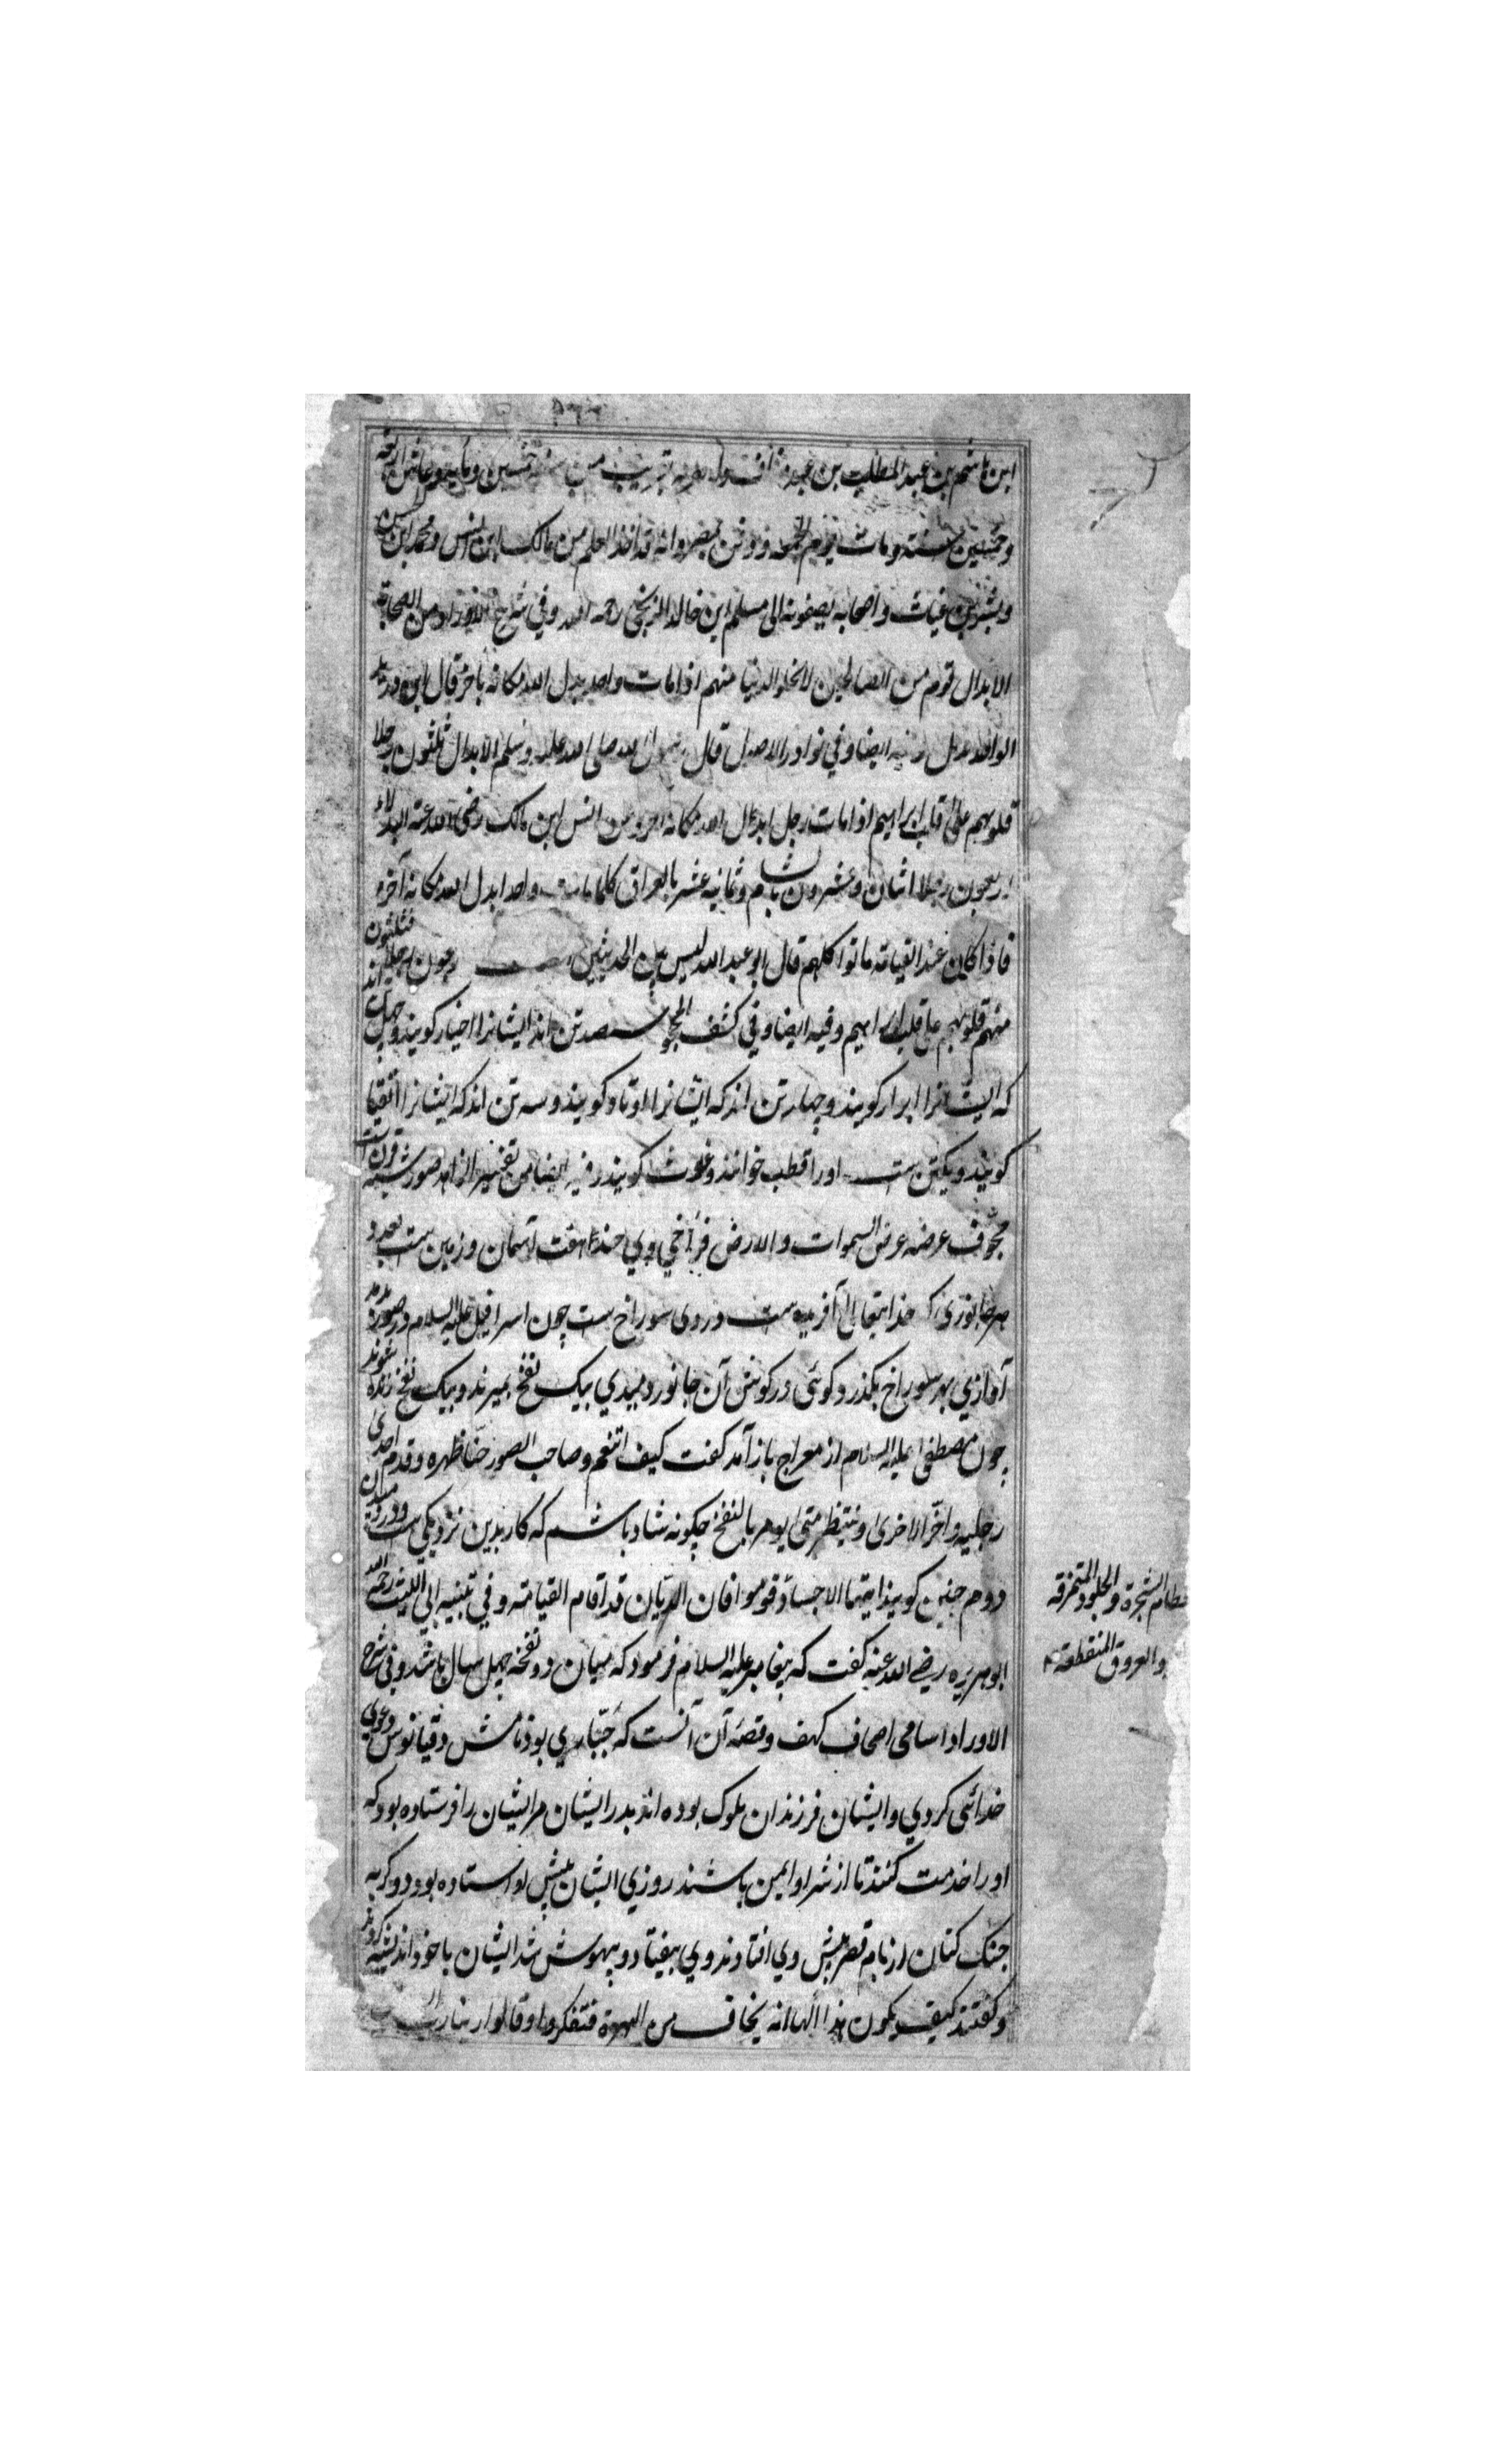 ابن هاشم بن عبد المطلب بن عبد مناف ولد بقرية سنة خمسين ومایه وعاش اربعة
وخمسین سنة ومات یوم الجمعة ودفن بمصر وانه قد اخذ العلم من مالک ابن انس ومحمد ابن الحسن
وبشر بن غیاث واصحابه یضیفونه الی مسلم ابن خالد الزنجی رحمه الله وفي شرح الاوراد من الصحابة
الابدال قوم من الصالحین لا تخلو الدنیا منهم اذا مات واحد یبدل الله مکانه باخر قال ابن درید
الواحد بدیل فیه ایضا وفي نوادر الاصول قال رسول الله صلی الله علیه وسلم الابدال ثلثون رجلا
قلوبهم علی قلب ابراهیم اذا مات رجل ابدال الله مکانه اخر وعن انس ابن مالک رضی الله عنه البدلاء
اربعون رجلا اثنان وعشرون بالشام وثمانیه عشر بالعراق کلما مات واحد ابدل الله مکانه آخر
فاذا کان عند القیامة ماتوا کلهم قال ابو عبد الله لیس بین الحدیثین اربعون رجلا فثلثون
منهم قلوبهم علی قلب ابراهیم وفیه ایضا وفي کشف المحجوب سیصد تن اند ایشانرا اخیار کویند و چهل تن اند
که ایشانرا ابرار کویند و چهار تن اند که ایشانرا اوتاد کویند و سه تن اند که ایشانرا نقبا
کویند و یکتن ست اورا قطب خوانند و غوث کویند فیه ایضا من تفسیر الزاهد صور شبه قرن ست
مجوف عرضه عرض السموات والارض فراخي وي چند هفت آسمان و زمین ست بعدد
هر جانوری که خدایتعالی آفریده ست در وی سوراخ ست چون اسرافیل علیه السلام در صور دمد
آوازي بهر سوراخ بکذرد و کوئی در کوش آن جانور دمیدي بیک نفخ بمیرند و بیک نفخ زنده شوند
چون مصطفی علیه السلام از معراج باز آمد کفت کیف اتنعم وصاحب الصور حنا ظهره وقدم احدی
رجلیه واخر الاخری وینتظر متی یومر بالنفخ چکونه شاد باشم که کار بدین نزدیکی ست ودر دمیدن
دوم چنین کویند ایتها الاجساد قوموا فان الدیان قد اقام القیامة وفي تنبیه ابي اللیث رحمه الله
ابو هریره رضي الله عنه کفت که پیغامبر علیه السلام فرمود که میان دو نفخه چهل سال باشد وفي شرح
الاوراد اسامی اصحاب کهف و قصه آن آنست که جباری بود نامش دقیانوس دعوي
خدائی کردي و ایشان فرزندان ملوک بوده اند پدر ایشان مر ایشان را فرستاده بود که
اورا خدمت کنند تا از شر او ایمن باشند روزي ایشان پیش او استاده بود دو کربه
جنک کنان از بام قصر پیش وي افتادند وي بیفتاد و بیهوش شد ایشان با خود اندیشه کردند
و کفتند کیف یکون هذا الها انه یخاف من الهرة فتفکروا وقالوا ربنا رب
عظام النخرة والجلود المتمزقه
والعروق المنقطعة